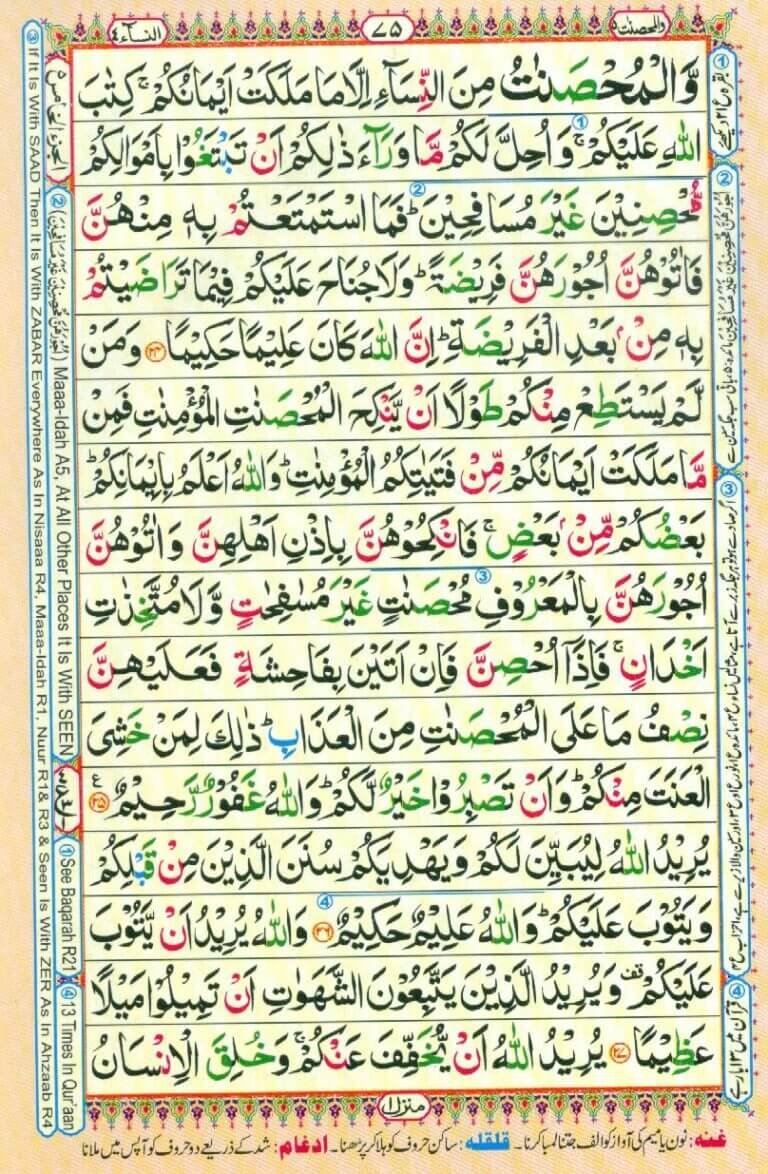 والمحصنت
٧٥
النسآء ٤
وَّالۡمُحۡصَنٰتُ مِنَ النِّسَآءِ اِلَّا مَا مَلَكَتۡ اَيۡمَانُكُمۡ ۚ كِتٰبَ
اللّٰهِ عَلَيۡكُمۡ ۚ ① وَاُحِلَّ لَكُمۡ مَّا وَرَآءَ ذٰلِكُمۡ اَنۡ تَبۡتَغُوۡا بِاَمۡوَالِكُمۡ
مُّحۡصِنِيۡنَ غَيۡرَ مُسَافِحِيۡنَ ؕ ② فَمَا اسۡتَمۡتَعۡتُمۡ بِهٖ مِنۡهُنَّ
فَاٰتُوۡهُنَّ اُجُوۡرَهُنَّ فَرِيۡضَةً ؕ وَلَا جُنَاحَ عَلَيۡكُمۡ فِيۡمَا تَرَاضَيۡتُمۡ
بِهٖ مِنۡۢ بَعۡدِ الۡفَرِيۡضَةِ ؕ اِنَّ اللّٰهَ كَانَ عَلِيۡمًا حَكِيۡمًا ﴿۲۴﴾ وَمَنۡ
لَّمۡ يَسۡتَطِعۡ مِنۡكُمۡ طَوۡلًا اَنۡ يَّنۡكِحَ الۡمُحۡصَنٰتِ الۡمُؤۡمِنٰتِ فَمِنۡ
مَّا مَلَكَتۡ اَيۡمَانُكُمۡ مِّنۡ فَتَيٰتِكُمُ الۡمُؤۡمِنٰتِ ؕ وَاللّٰهُ اَعۡلَمُ بِاِيۡمَانِكُمۡ ؕ
بَعۡضُكُمۡ مِّنۡۢ بَعۡضٍ ۚ فَانْكِحُوۡهُنَّ بِاِذۡنِ اَهۡلِهِنَّ وَاٰتُوۡهُنَّ
اُجُوۡرَهُنَّ بِالۡمَعۡرُوۡفِ مُحۡصَنٰتٍ ③ غَيۡرَ مُسٰفِحٰتٍ وَّلَا مُتَّخِذٰتِ
اَخۡدَانٍ ۚ فَاِذَاۤ اُحۡصِنَّ فَاِنۡ اَتَيۡنَ بِفَاحِشَةٍ فَعَلَيۡهِنَّ
نِصۡفُ مَا عَلَى الۡمُحۡصَنٰتِ مِنَ الۡعَذَابِ ؕ ذٰلِكَ لِمَنۡ خَشِىَ
الۡعَنَتَ مِنۡكُمۡ ؕ وَاَنۡ تَصۡبِرُوۡا خَيۡرٌ لَّكُمۡ ؕ وَاللّٰهُ غَفُوۡرٌ رَّحِيۡمٌ ﴿۲۵﴾ ع
يُرِيۡدُ اللّٰهُ لِيُبَيِّنَ لَكُمۡ وَيَهۡدِيَكُمۡ سُنَنَ الَّذِيۡنَ مِنۡ قَبۡلِكُمۡ
وَيَتُوۡبَ عَلَيۡكُمۡ ؕ وَاللّٰهُ عَلِيۡمٌ حَكِيۡمٌ ④ ﴿۲۶﴾ وَاللّٰهُ يُرِيۡدُ اَنۡ يَّتُوۡبَ
عَلَيۡكُمۡ ۟ وَيُرِيۡدُ الَّذِيۡنَ يَتَّبِعُوۡنَ الشَّهَوٰتِ اَنۡ تَمِيۡلُوۡا مَيۡلًا
عَظِيۡمًا ﴿۲۷﴾ يُرِيۡدُ اللّٰهُ اَنۡ يُّخَفِّفَ عَنۡكُمۡ ۚ وَخُلِقَ الۡاِنۡسَانُ
منزل ١
غنہ: نون یا میم کی آواز کو الف جتنا لمبا کرنا۔ قلقلہ: ساکن حروف کو ہلا کر پڑھنا۔ ادغام: شد کے ذریعے دو حروف کو آپس میں ملانا
الجزء الخامس
② Maaa-Idah A5, At All Other Places It Is With SEEN
① See Baqarah R21
④ 13 Times In Qur'aan
③ If It Is With SAAD Then It Is With ZABAR Everywhere As In Nisaaa R4, Maaa-Idah R1, Nuur R1& R3 & Seen Is With ZER As In Ahzaab R4
④ قرآن میں ۱۳ بار ہے